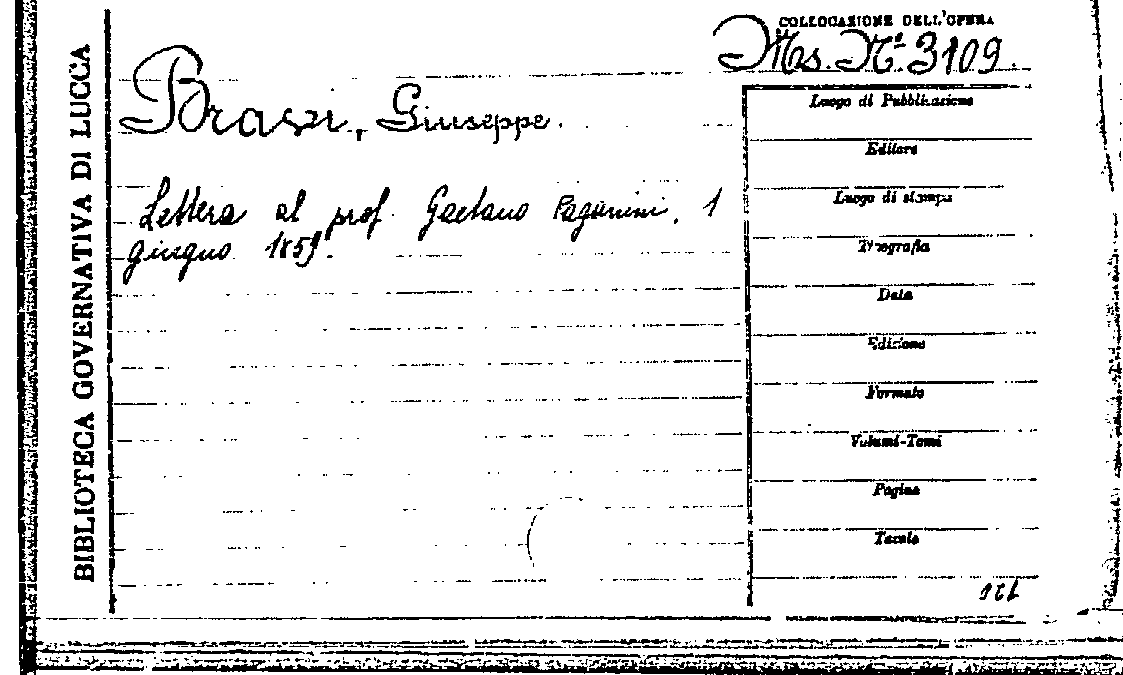 BIBLIOTECA GOVERNATIVA DI LUCCA
COLLOCAZIONE DELL'OPERA
Ms. N.º 3109.
Giuseppe.
Lettera al prof. Gaetano Paganini, 1
giugno 1859.
Luogo di Pubblicazione
Editore
Luogo di stampa
Tipografia
Data
Edizione
Formato
Volumi-Tomi
Pagine
Tavole